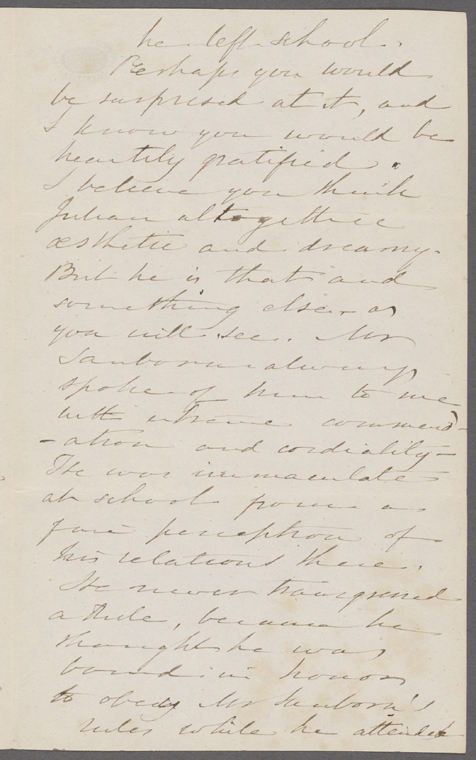 he left school.
Perhaps you would
be surprised at it, and
I know you would be
heartily gratified.
I believe you think
Julian altogether
æsthetic and dreamy.
But he is that and
something else, as
you will see. Mr
Sanborn always
spoke of him to me
with extreme commend-
-ation and cordiality-
He was immaculate
at school from a
fair perception of
his relations there.
He never transgressed
a rule, because he
thought he was
bound in honor
to obey Mr Sanborn's
rules while he attended